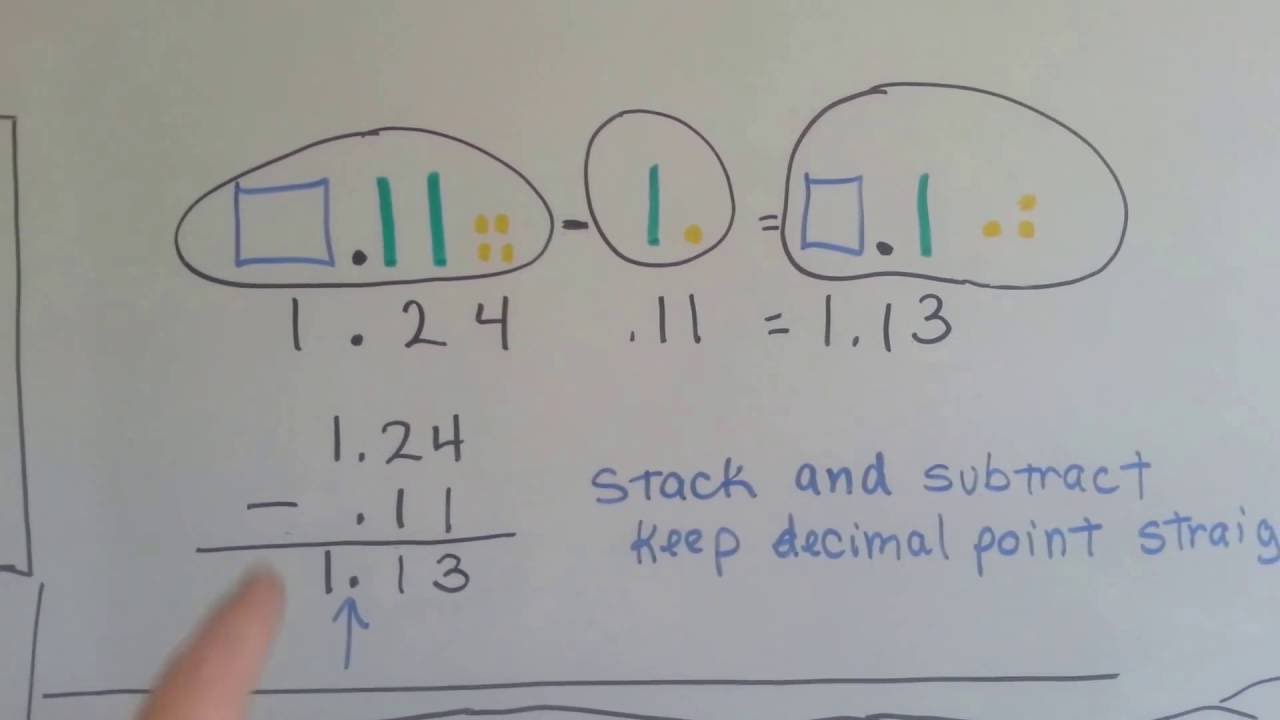 - =
1.24 .11 = 1.13
1.24
- .11
1.13
stack and subtract
keep decimal point straig